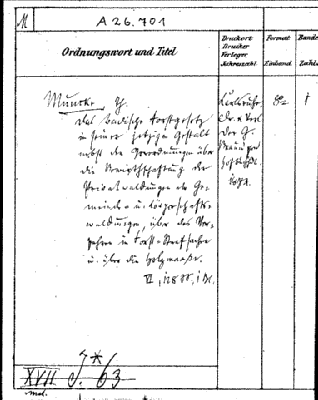 M
A 26.701
Ordnungswort und Titel
Druckort
Drucker
Verleger
Jahreszahl
Format
Einband
Bände
Zahl
Muncke, Th.
Das badische Forstgesetz
in seiner jetzigen Gestalt
nebst den Verordnungen über
die Bewirthschaftung der
Privatwaldungen der Ge-
meinde- u. Körperschafts-
waldungen, über das Ver-
fahren in Forst-Strafsachen
u. über die Holzmaaße.
Karlsruhe
Dr. u. Verl.
der G.
Braun'schen
Hofbchh.
8°
1
XVII
63